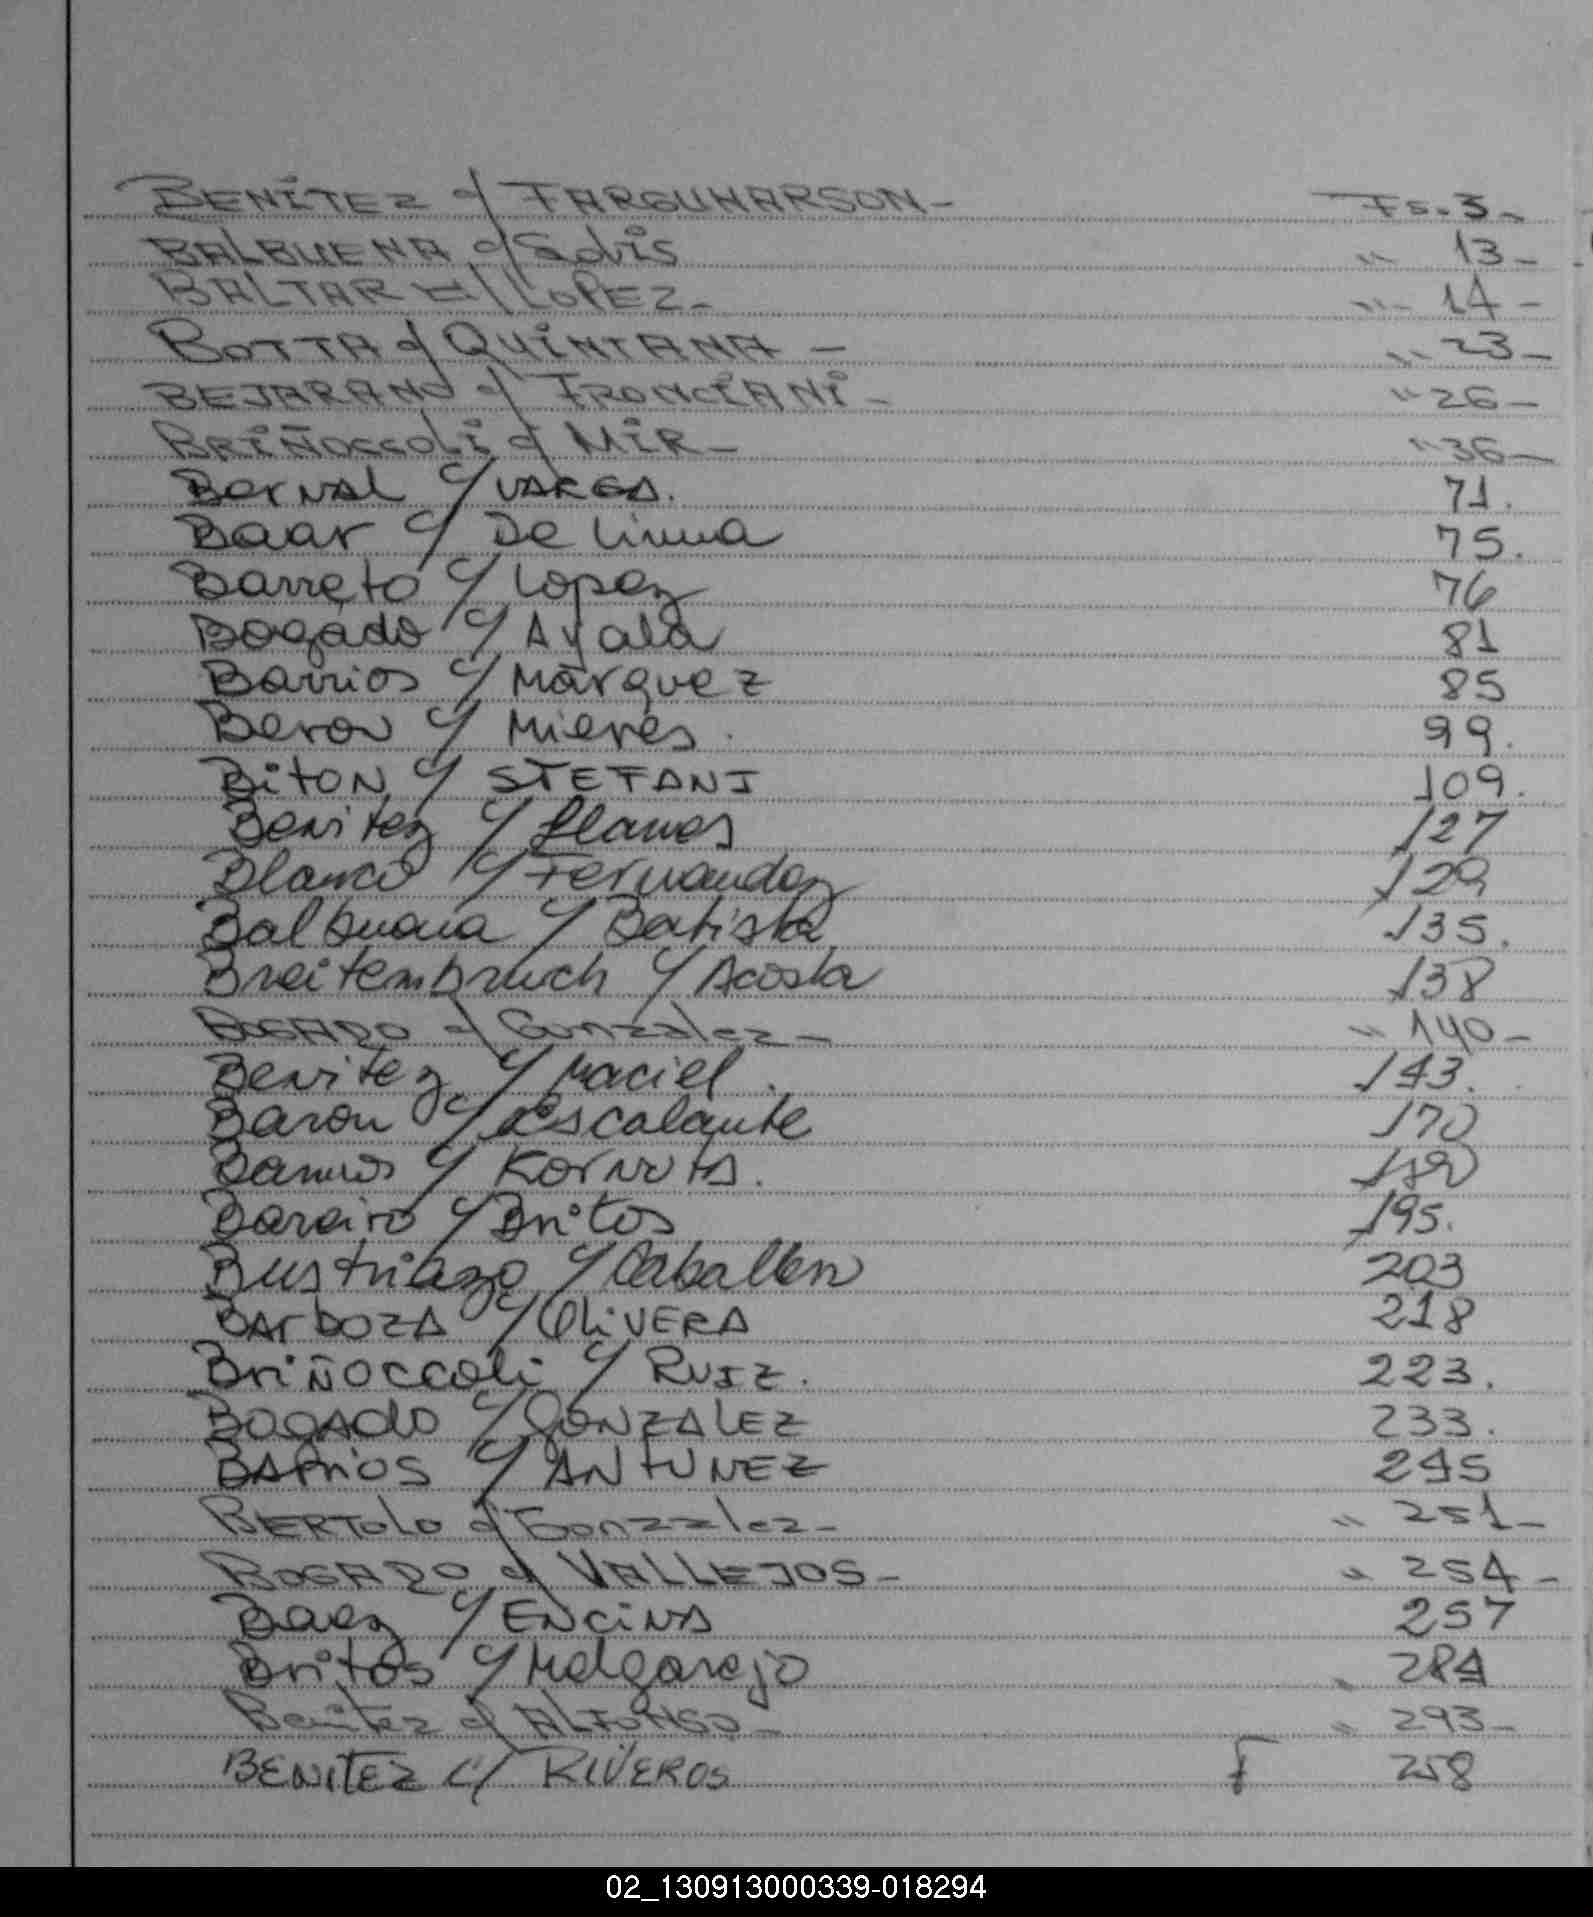 BENÍTEZ c/ FARGUHARSON- Fs. 3-
BALBUENA c/ Solis " 13-
BALTAR c/ LOPEZ- " 14-
BOTTA c/ QUINTANA - " 23-
BEJARANO c/ FRONCIANI- " 26-
BRIÑOCCOLI c/ MIR- " 36-
BerNAL c/ VARGA. 71.
Baar c/ De Limma 75.
Barreto c/ Lopez 76
Bogado c/ Ayala 81
Barrios c/ Márquez 85
Beron c/ Mieres. 99.
BitON c/ STEFANI 109.
Benitez c/ Llanos 127
Blanco c/ Fernandez 129
Balbuena c/ Batista 135.
Breitembruch c/ Acosta 138
BOGADO c/ Gonzalez- " 140-
Benitez c/ Maciel. 143.
Baron c/ Escalante 170
c/ Kornuta.
Bareiro c/ Britos 195.
Bustriazo c/ Caballero 203
BArbOZA c/ OLiVERA 218
BriÑoccoli c/ RUIZ. 223.
BOGAdO c/ GONZALEZ 233.
BArriOS c/ ANTUNEZ 245
BERTOLO c/ Gonzalez- " 251-
BOGADO c/ VALLEJOS- " 254-
Baez c/ ENCiNA 257
Britos c/ Melgarejo 284
Benitez c/ ALFONSO- " 293-
BENITEZ c/ RIVEROS F 258
02_130913000339-018294